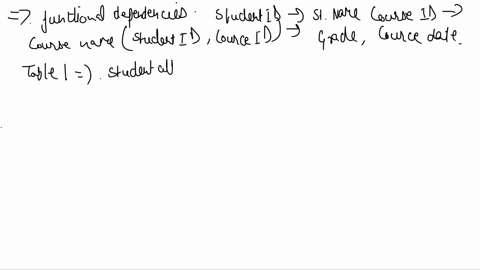 =>. functional dependencies. Student ID -> St. Name Course ID ->
Course name (Student ID, Cource ID) -> Grade, Cource date.
Table 1 =). student all